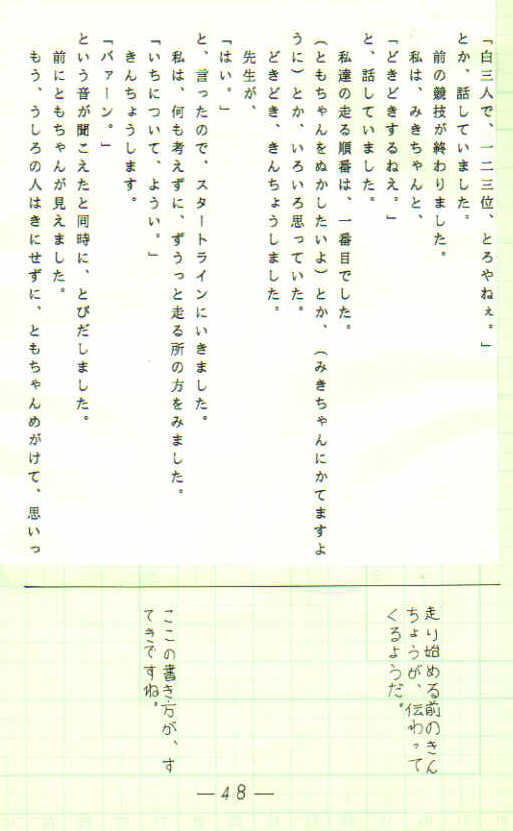 「白三人で、一二三位、とろやねぇ。」
とか、話していました。
前の競技が終わりました。
私は、みきちゃんと、
「どきどきするねえ。」
と、話していました。
私達の走る順番は、一番目でした。
（ともちゃんをぬかしたいよ）とか、（みきちゃんにかてますよ
うに）とか、いろいろ思っていた。
どきどき、きんちょうしました。
先生が、
「はい。」
と、言ったので、スタートラインにいきました。
私は、何も考えずに、ずうっと走る所の方をみました。
「いちについて、ようい。」
きんちょうします。
「バァーン。」
という音が聞こえたと同時に、とびだしました。
前にともちゃんが見えました。
もう、うしろの人はきにせずに、ともちゃんめがけて、思いっ
走り始める前のきん
ちょうが、伝わって
くるようだ。
ここの書き方が、す
てきですね。
—48—